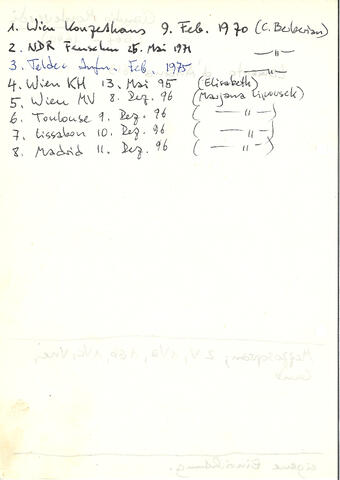 1. Wien Konzerthaus 9. Feb. 1970 (C. Berberian)
2. NDR Fernsehen 25. Mai 1971 —"—
3. Teldec Aufn. Feb. 1975 —"—
4. Wien KH 13. Mai 95 (Elisabeth)
5. Wien MV 8. Dez. 96 (Marjana Lipovsek)
6. Toulouse 9. Dez. 96 ( —"— )
7. Lissabon 10. Dez. 96 ( —"— )
8. Madrid 11. Dez. 96 ( —"— )
Mezzosopran, 2 V, 1 Va,
eigene Einrichtung.